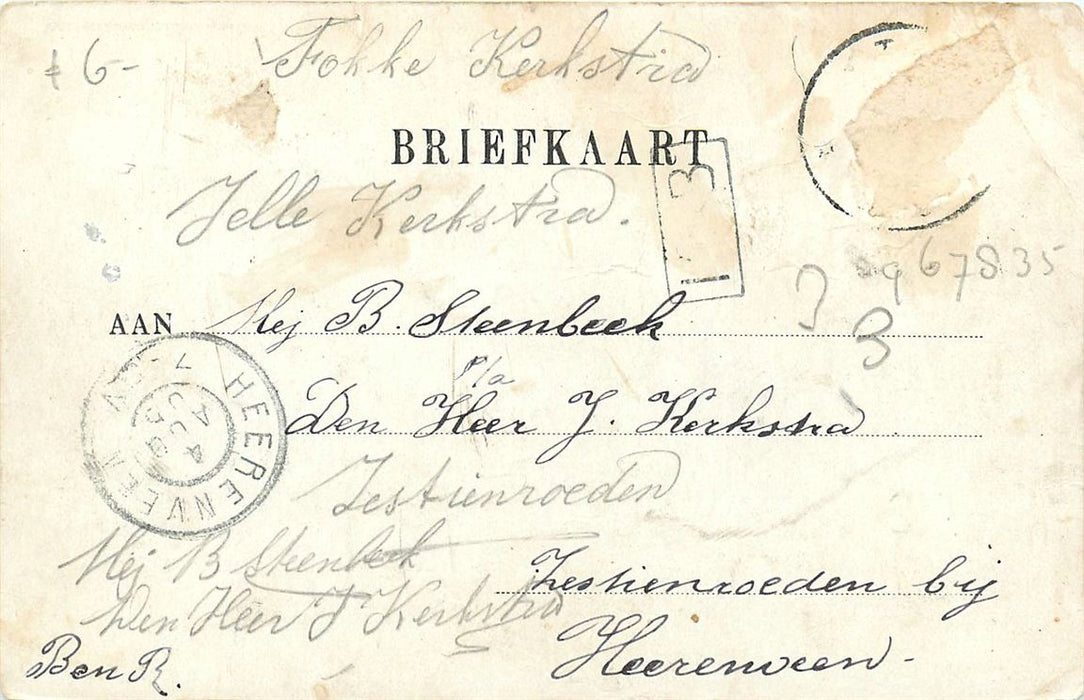 6-
Fokke Kerkstra
BRIEFKAART
3
1
Jelle Kerkstra.
9 67835
3
3
AAN Mej B. Steenbeek
p/a
Den Heer J. Kerkstra
HEERENVEEN
4 AUG
Zestienroeden
Mej B Steenbeek
Den Heer J Kerkstra
Zestienroeden bij
Heerenveen-
Ben R.